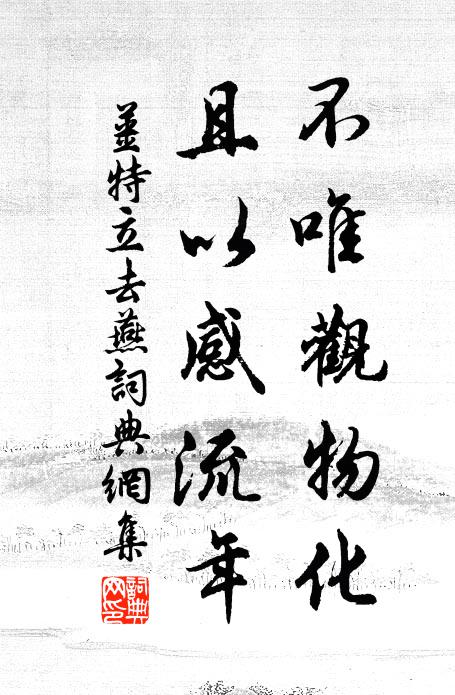 不唯觀物化
且以感流年
姜特立去燕詞典網集
詞典網印